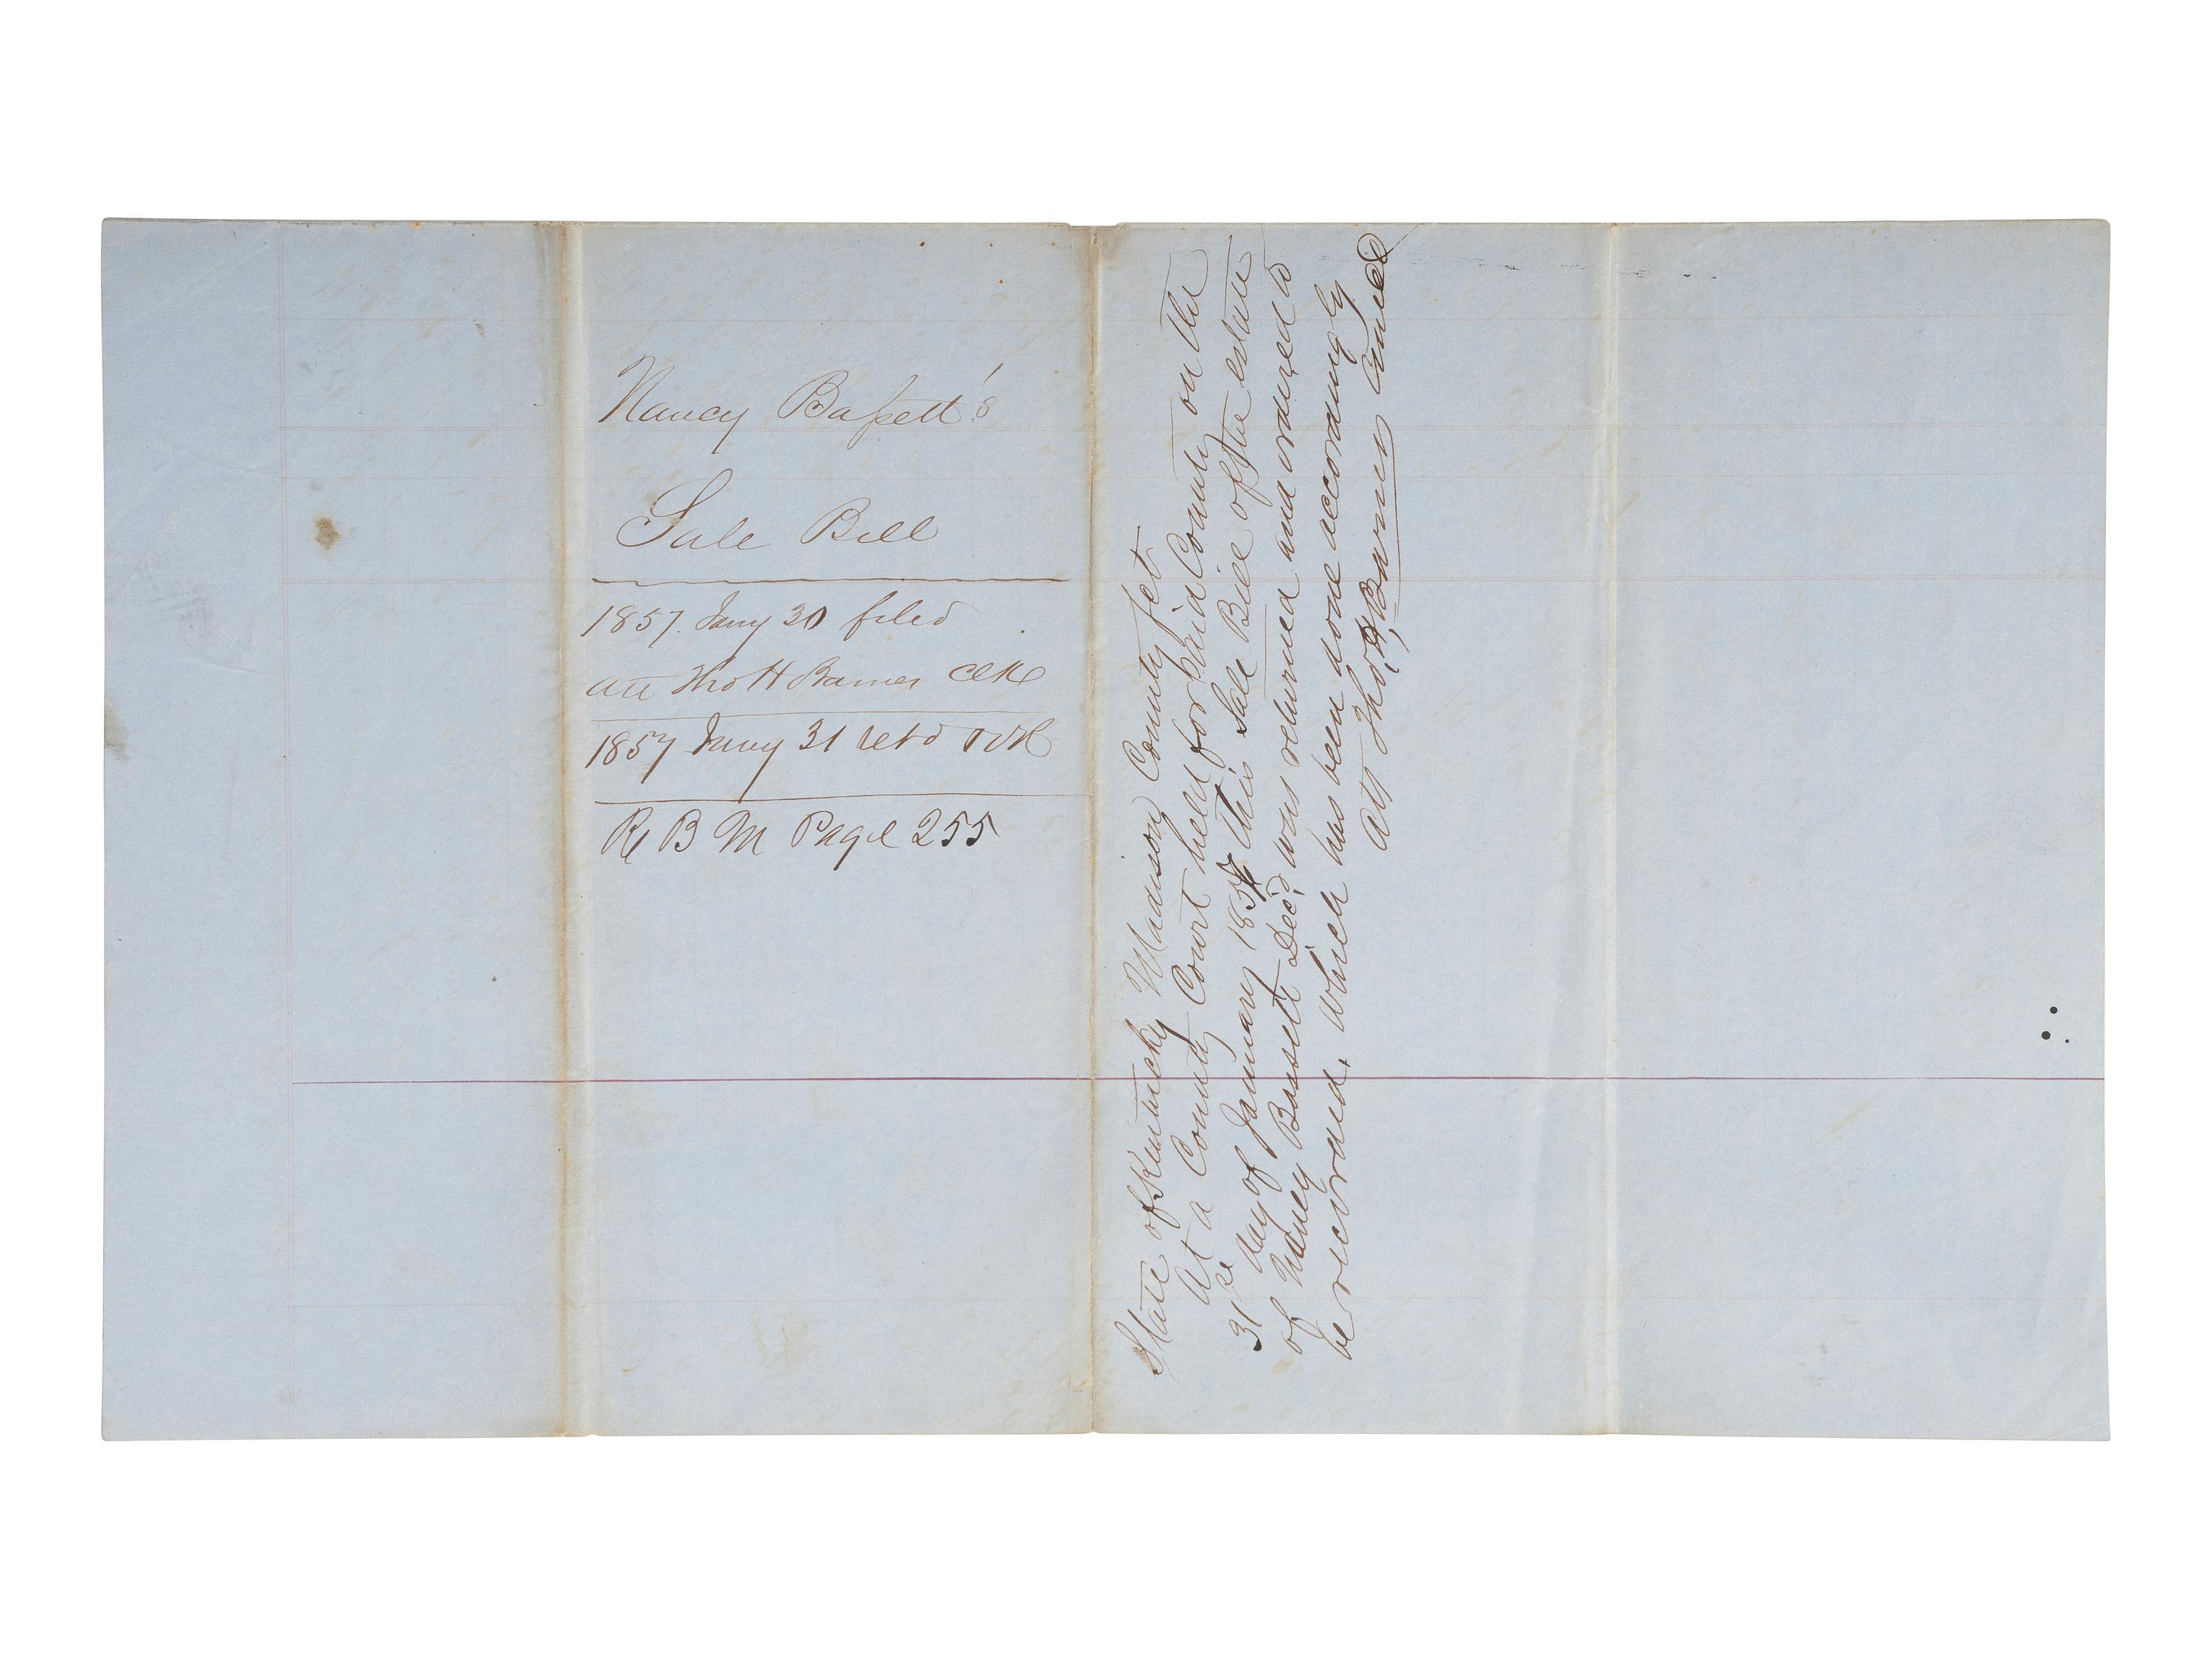 Nancy Bassett's
Sale Bill
1857. Jany 30 filed
att Tho H Barnes Clk
1857 Jany 31 retd
R B M Page 255
State of Kentucky Madison County Sct
At a County Court held for said County on the
31st day of January 1857 this Sale Bill of the estate
of Nancy Bassett Decd was returned and ordered to
be recorded, which has been done accordingly
att Tho, H, Barnes